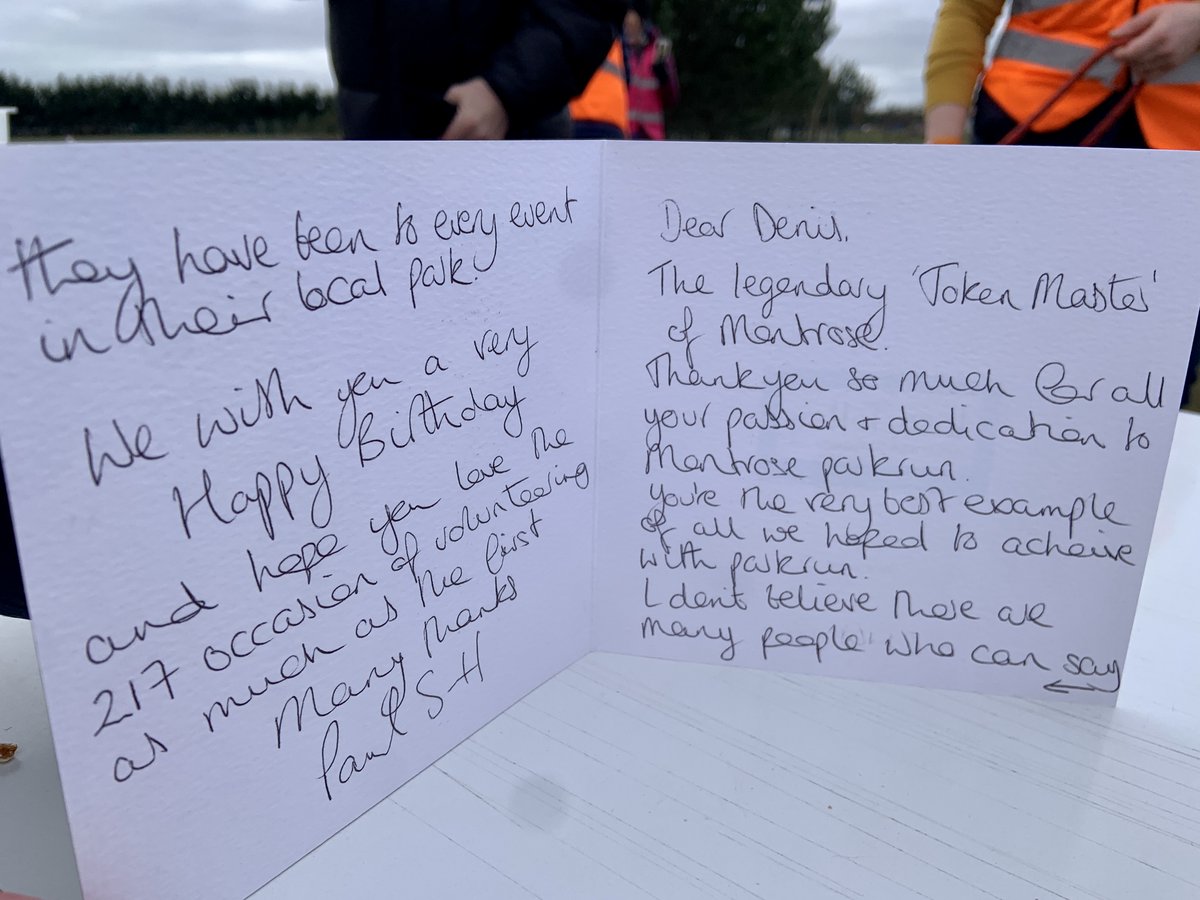 Dear Denis,
The legendary 'Token Master'
of Montrose.
Thankyou so much for all
your passion + dedication to
Montrose parkrun.
You're the very best example
of all we hoped to acheive
with parkrun.
I don't believe there are
many people who can say
they have been to every event
in their local park.
We wish you a very
Happy Birthday
and hope you love the
217 occasion of volunteering
as much as the first
Many thanks
Paul S-H